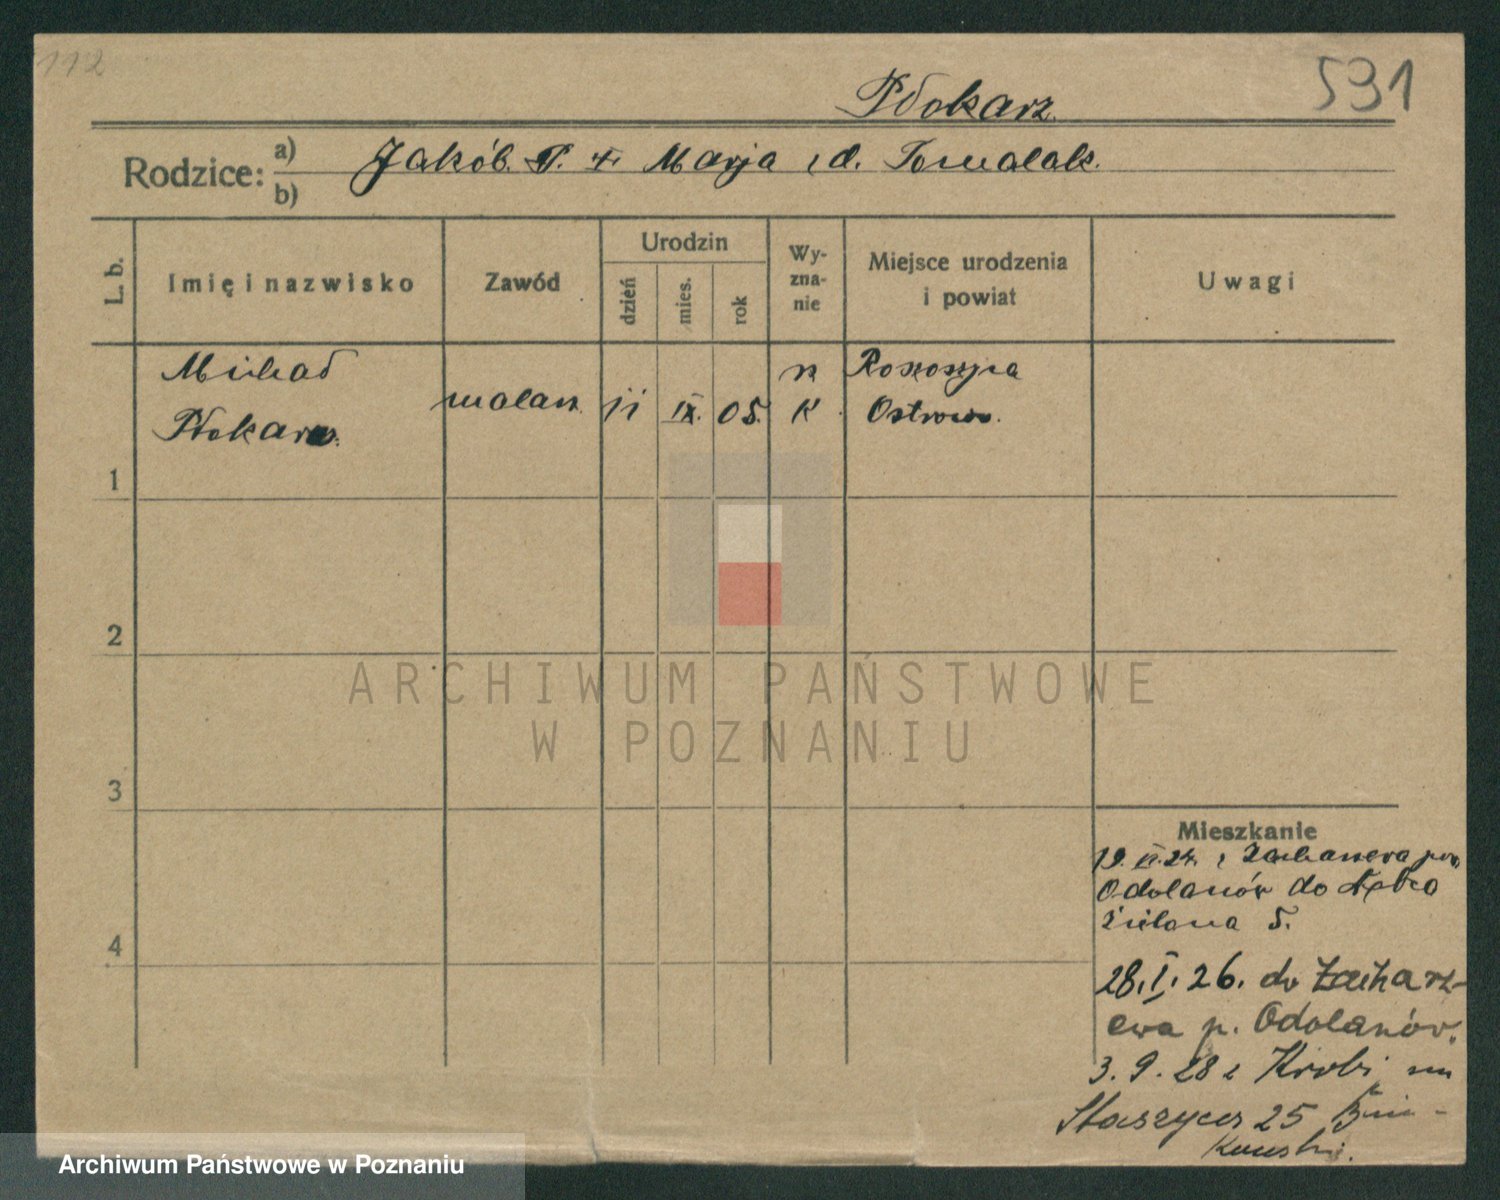 112
531
Płokarz.
Rodzice: a) b)
Jakób. P. + Marja z d. Tomalak.
L. b.
Imię i nazwisko
Zawód
Urodzin
dzień
mies.
rok
Wy-
zna-
nie
Miejsce urodzenia
i powiat
Uwagi
Michał
Płokarz.
malarz
11
IX.
05.
rz
K
Rososzyca
Ostrowo.
1
2
3
4
ARCHIWUM PAŃSTWOWE
W POZNANIU
Mieszkanie
19. 24. z Zacharzewa pow
Odolanów do
Zielona 5.
28.I.26. do Zacharz-
ewa p. Odolanów.
3.9.28 z Krobi na
Staszyca 25
Archiwum Państwowe w Poznaniu